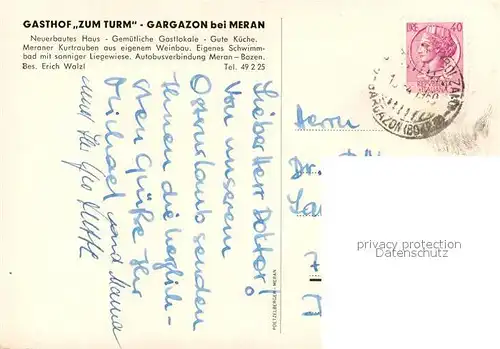 GASTHOF „ZUM TURM" - GARGAZON bei MERAN
Neuerbautes Haus - Gemütliche Gastlokale - Gute Küche.
Meraner Kurtrauben aus eigenem Weinbau. Eigenes Schwimm-
bad mit sonniger Liegewiese. Autobusverbindung Meran - Bozen.
Bes. Erich Walzl Tel. 49 2 25
Lieber Herr Doktor!
Von unserem
Osterurlaub senden
Ihnen die herzlich-
sten Grüße Ihr
Michael und Mama
und
POETZELBERGER - MERAN
LIRE 40
GARGAZON
Herrn
Dr.
privacy preserving
Datenschutz